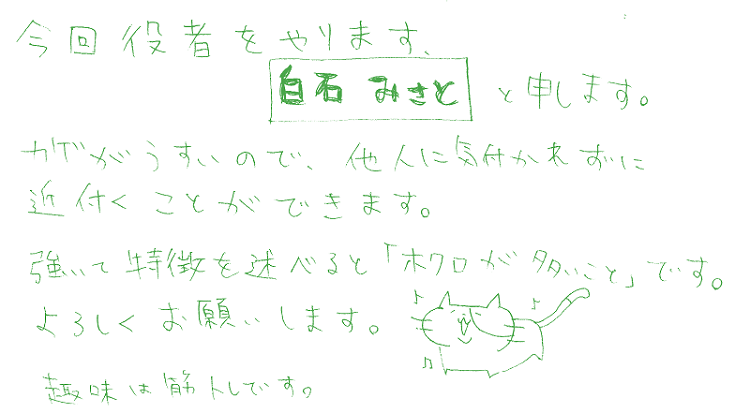 今回役者をやります、
白石 みさと と申します。
カゲがうすいので、他人に気付かれずに
近付くことができます。
強いて特徴を述べると「ホクロが多いこと」です。
よろしくお願いします。
趣味は筋トレです。